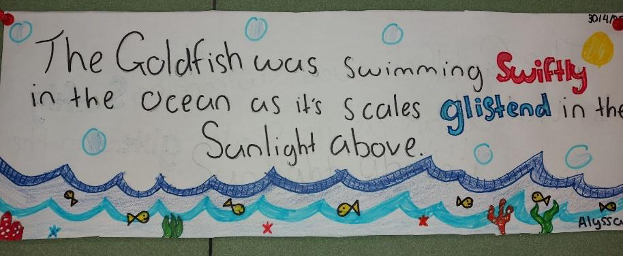 30/4/
The Goldfish was swimming Swiftly
in the ocean as it's scales glistend in the
Sunlight above.
Alyssa